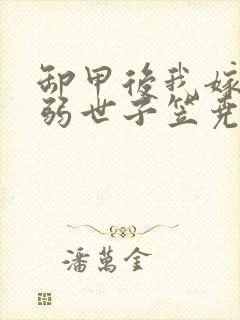 卸甲後我嫁
弱世子笠尭
潘萬金